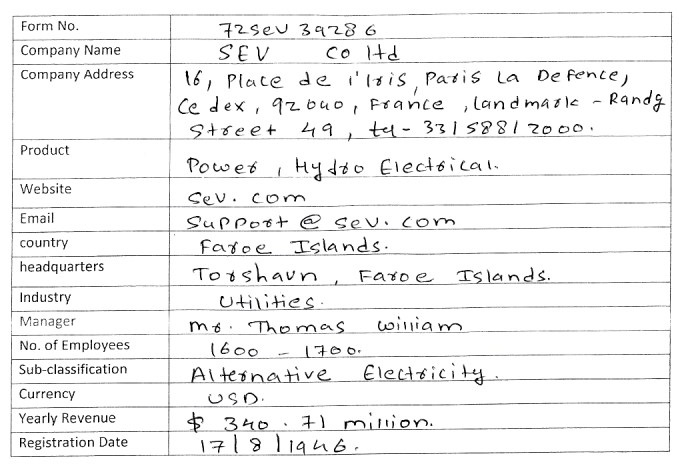 Form No. 72SeV 39286
Company Name SEV Co ltd
Company Address 16, Place de i'Iris, Paris La Defence,
Cedex, 92040, France, landmark - Randg
Street 49, tel- 33158812000.
Product Power, Hydro Electrical.
Website Sev.com
Email Support@sev.com
country Faroe Islands.
headquarters Torshavn, Faroe Islands.
Industry Utilities.
Manager Mr. Thomas william
No. of Employees 1600 - 1700.
Sub-classification Alternative Electricity.
Currency USD.
Yearly Revenue $ 340.71 million.
Registration Date 17/8/1946.